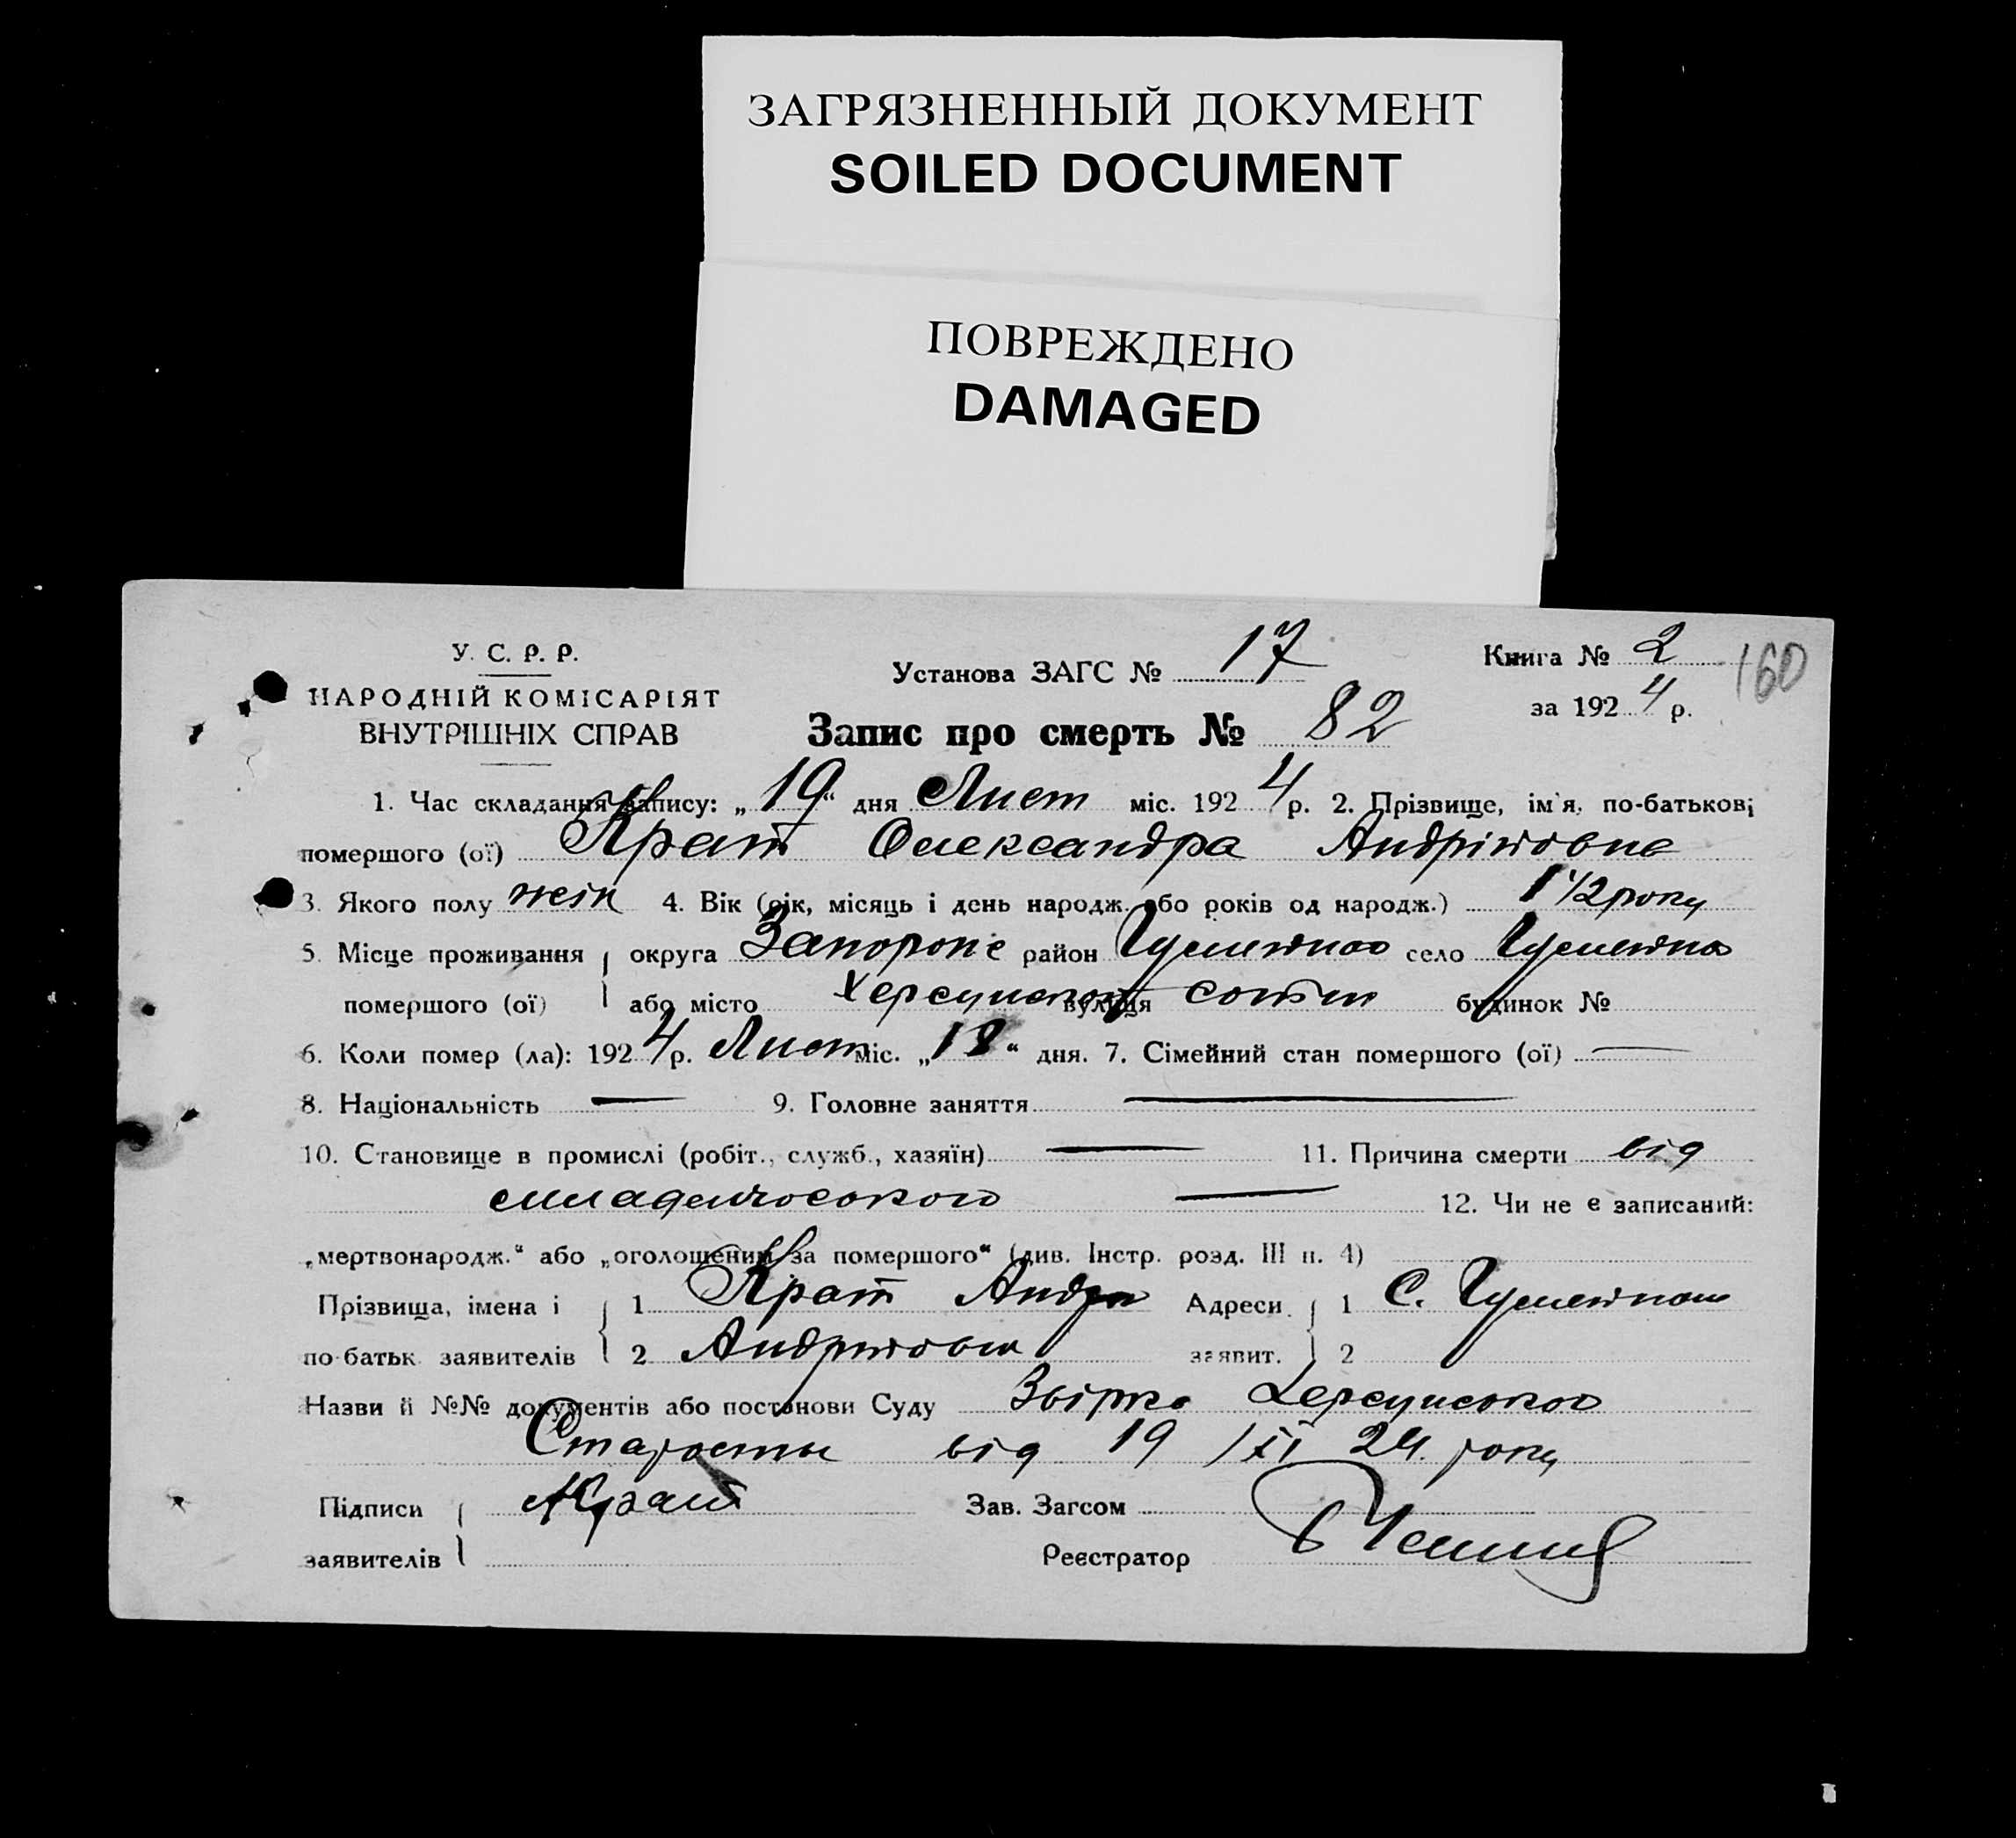 ЗАГРЯЗНЕННЫЙ ДОКУМЕНТ
SOILED DOCUMENT
ПОВРЕЖДЕНО
DAMAGED
У. С. Р. Р.
НАРОДНІЙ КОМІСАРІЯТ
ВНУТРІШНІХ СПРАВ
Установа ЗАГС № 17
Книга № 2
160
за 1924 р.
Запис про смерть № 82
1. Час складання запису: „19“ дня Лист міс. 1924 р. 2. Прізвище, ім'я, по-батькові
помершого (ої) Крат Олександра Андріївна
3. Якого полу жін 4. Вік (рік, місяць і день народж. або років од народж.) 1 1/2 року
5. Місце проживання округа Запороже район село
помершого (ої) або місто вулиця сотни будинок №
6. Коли помер (ла): 1924 р. Лист міс. „18“ дня. 7. Сімейний стан помершого (ої) —
8. Національність — 9. Головне заняття —
10. Становище в промислі (робіт., служб., хазяїн) — 11. Причина смерти від
младенчоського —
12. Чи не є записаний:
„мертвонародж.“ або „оголошений за помершого“ (див. Інстр. розд. III п. 4)
Прізвища, імена і 1 Крат Андрій Адреси 1 С.
по-батьк. заявителів 2 заявит. 2
Назви й №№ документів або постанови Суду Херсунського
Старости від 19/XI 24. року
Підписи АКрат Зав. Загсом
заявителів Реєстратор